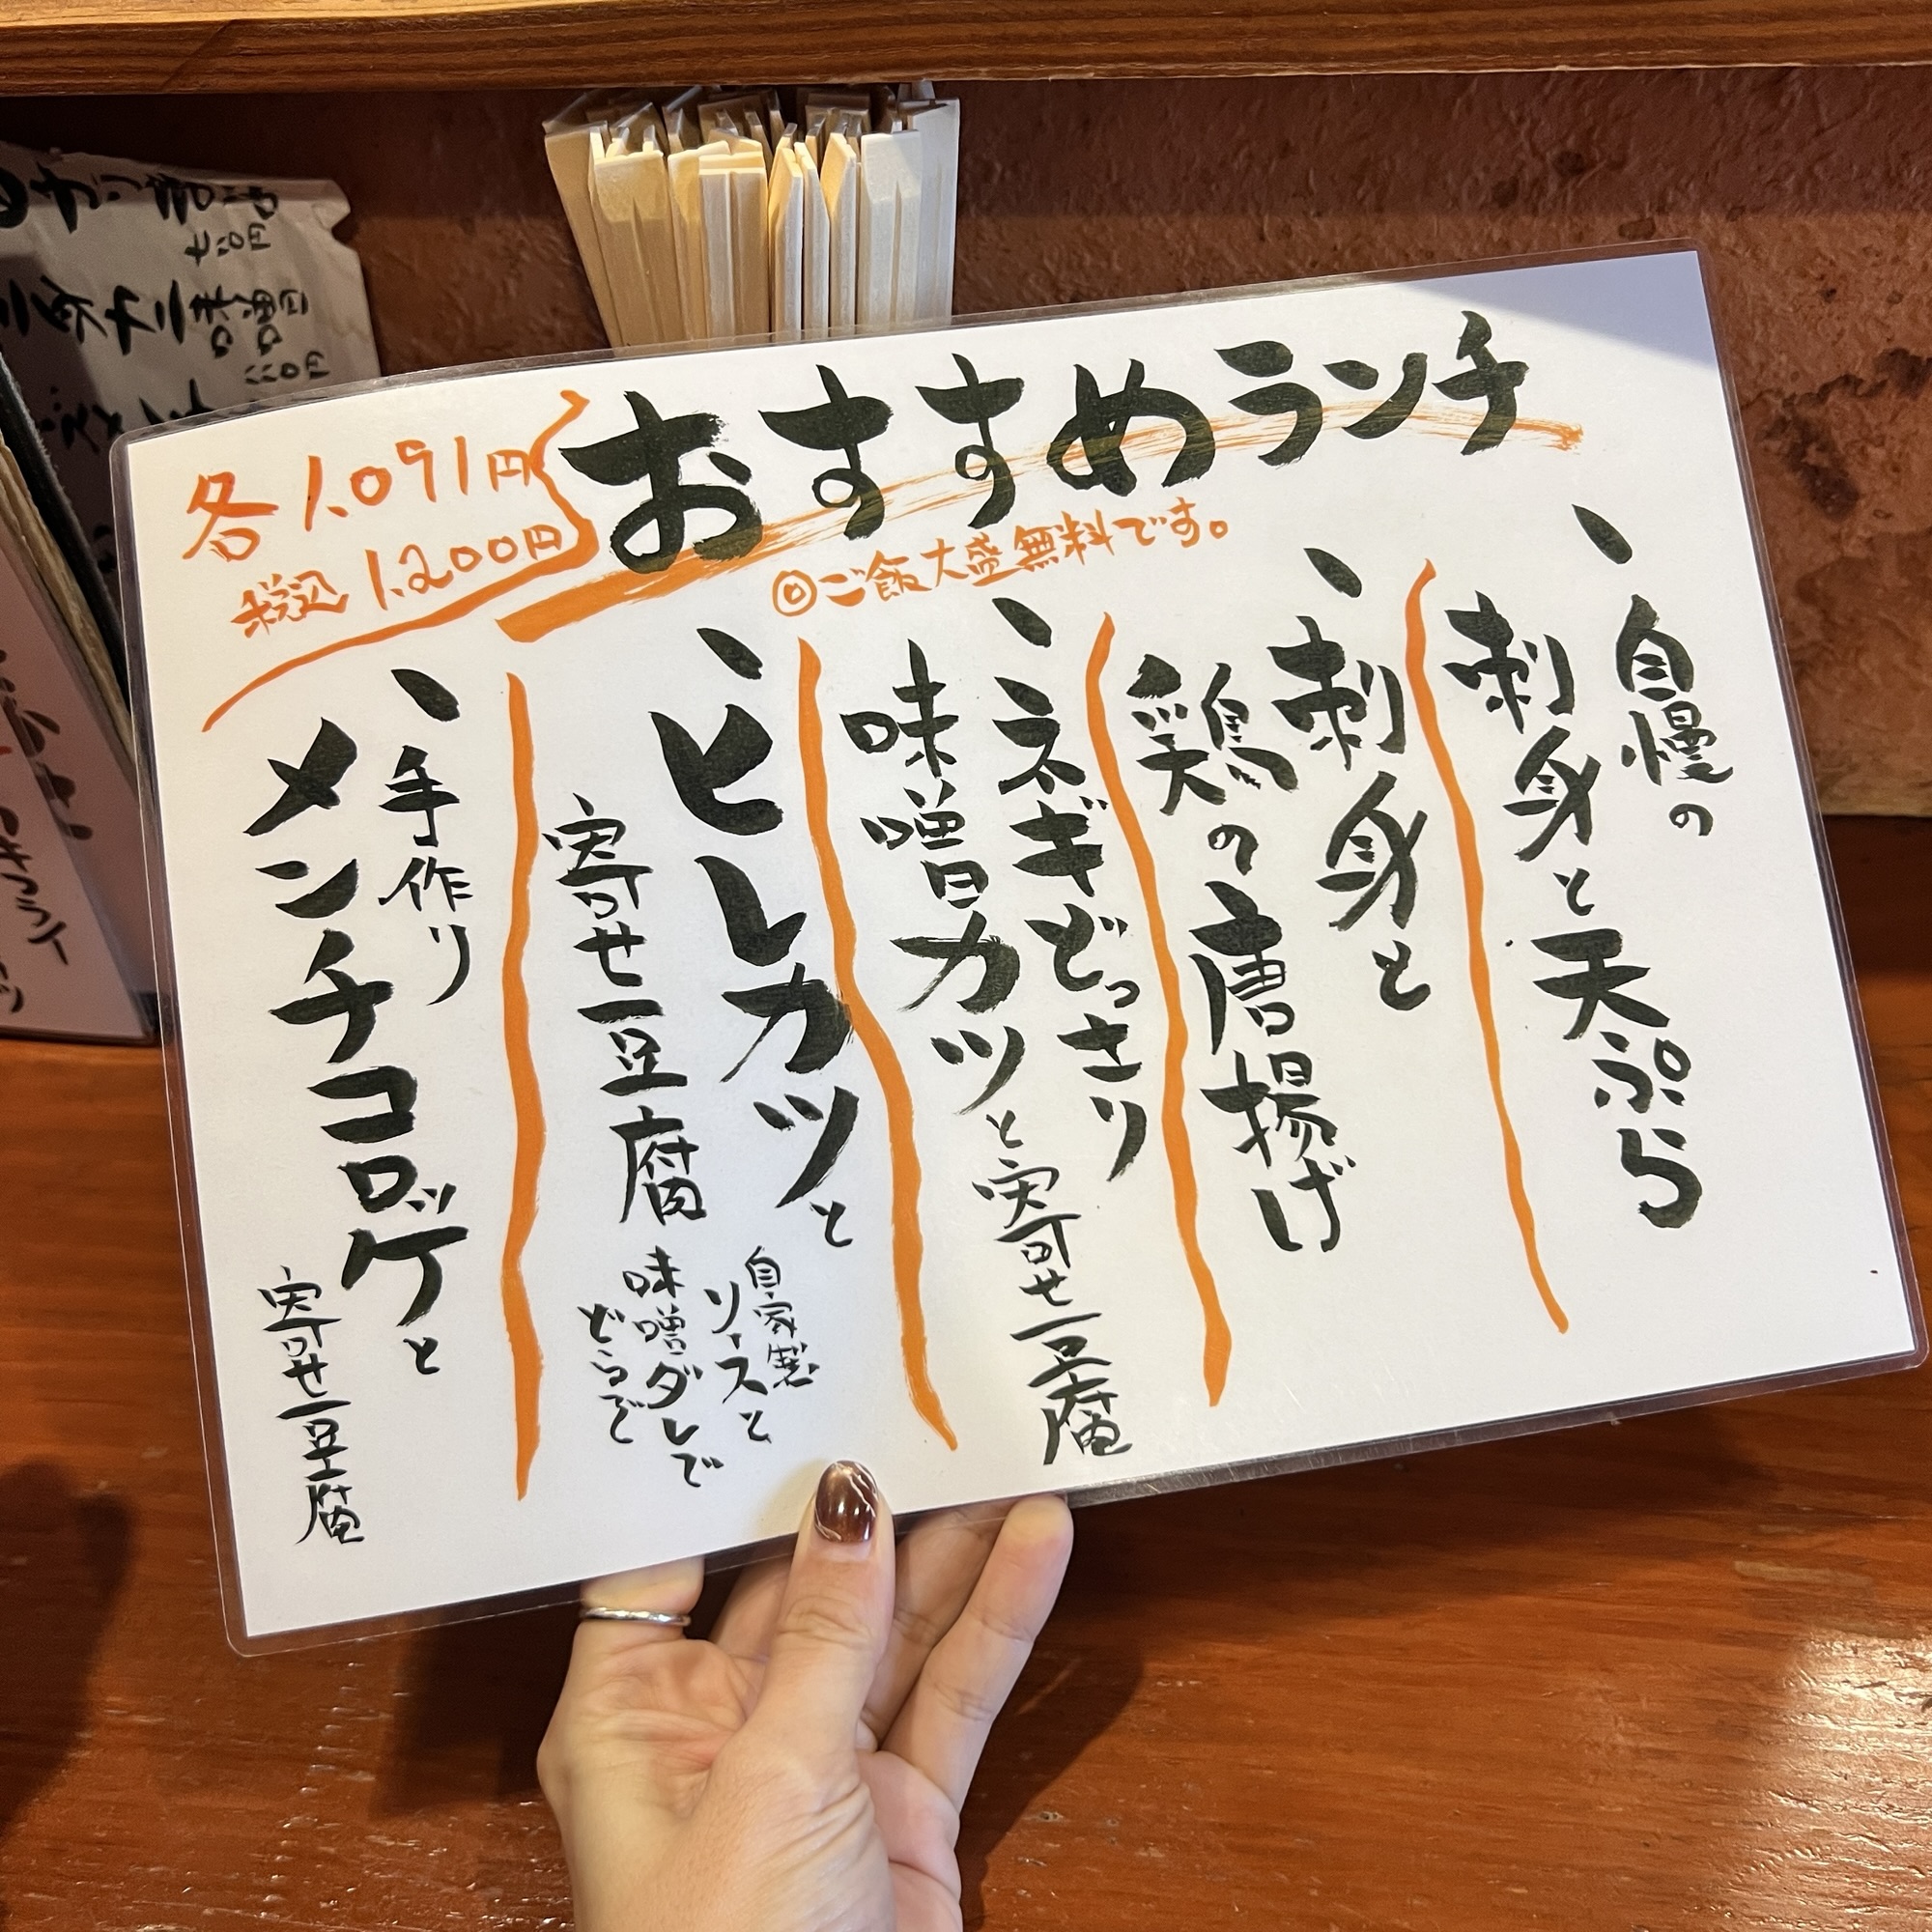 おすすめランチ
各1,091円
税込1,200円
◎ご飯大盛無料です。
、自慢の
刺身と天ぷら
、刺身と
鶏の唐揚げ
、ネギどっさり
味噌カツと寄せ豆腐
、ヒレカツと
寄せ豆腐
自家製
ソースと
味噌ダレで
どうぞ
、手作り
メンチコロッケと
寄せ豆腐